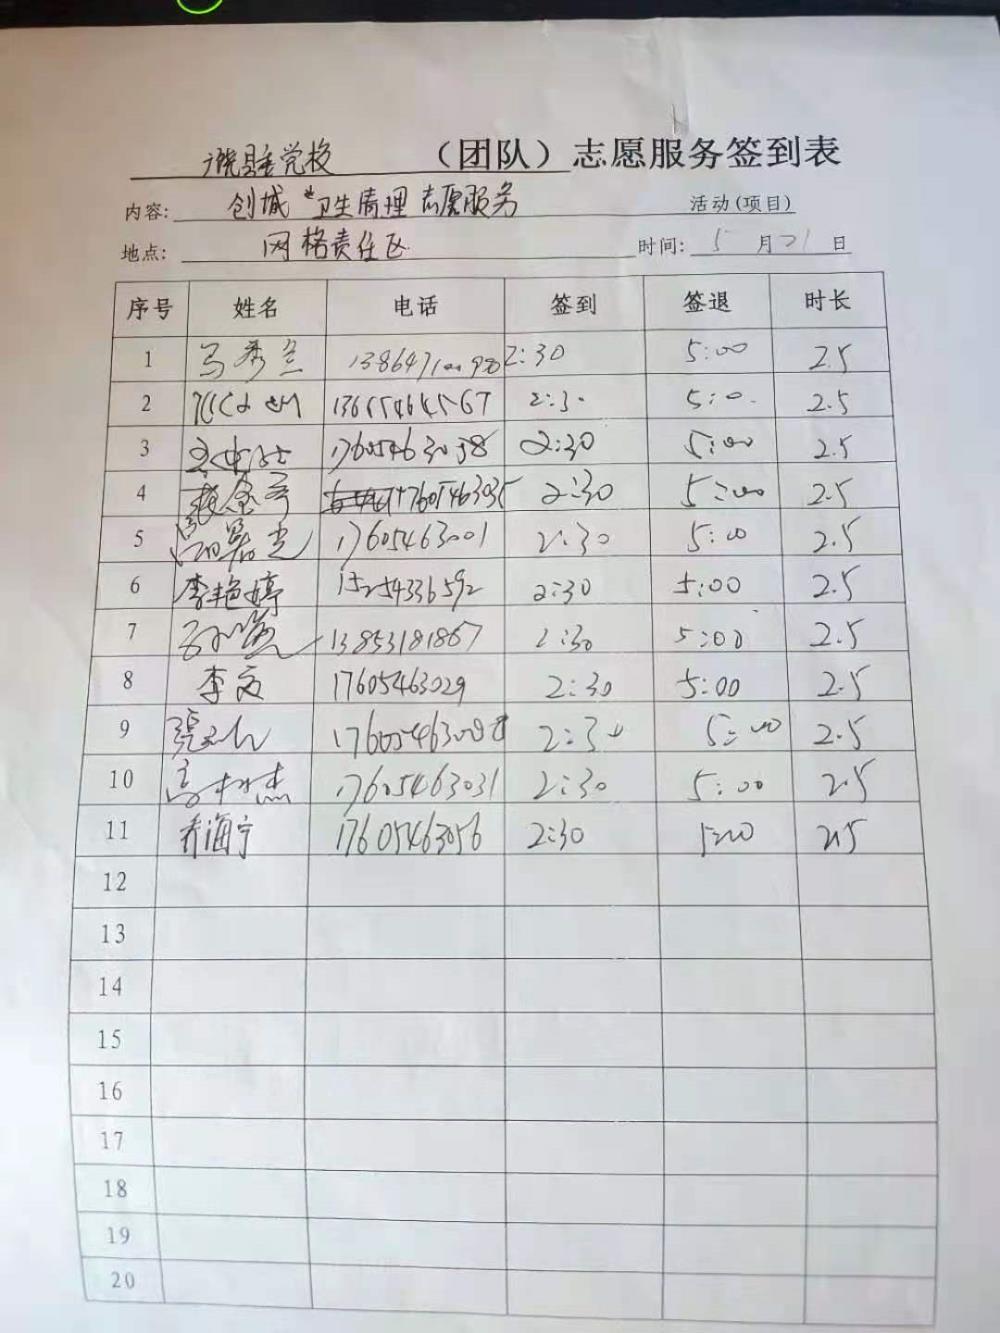 党校 （团队）志愿服务签到表
内容: 创城 卫生清理 志愿服务 活动(项目)
地点: 网格责任区 时间: 5 月 21 日
序号 姓名 电话 签到 签退 时长
1 马秀兰 2:30 5:00 2.5
2 2:30 5:00 2.5
3 17605463058 2:30 5:00 2.5
4 17605463035 2:30 5:00 2.5
5 17605463001 2:30 5:00 2.5
6 李艳婷 15254336592 2:30 5:00 2.5
7 13853181867 2:30 5:00 2.5
8 李文 17605463029 2:30 5:00 2.5
9 2:30 5:00 2.5
10 17605463031 2:30 5:00 2.5
11 乔海宁 17605463056 2:30 5:00 2.5
12
13
14
15
16
17
18
19
20